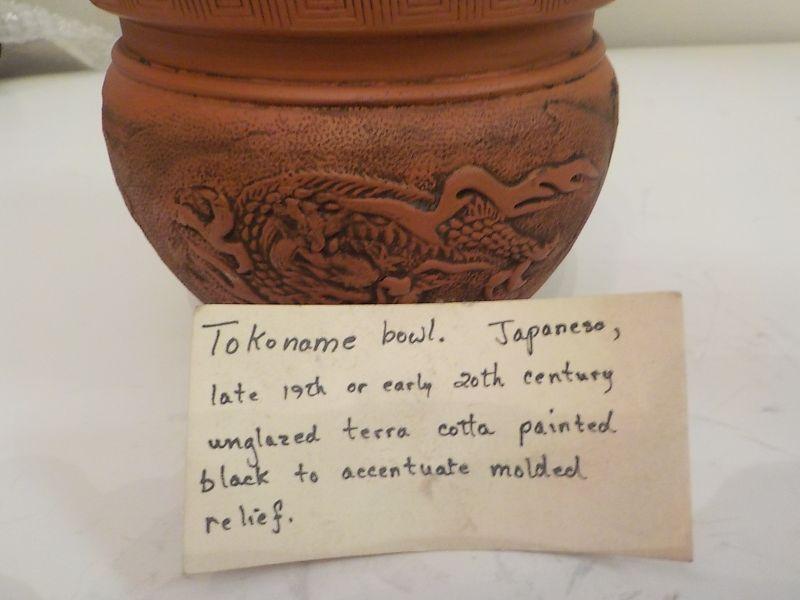 Tokoname bowl. Japanese,
late 19th or early 20th century
unglazed terra cotta painted
black to accentuate molded
relief.